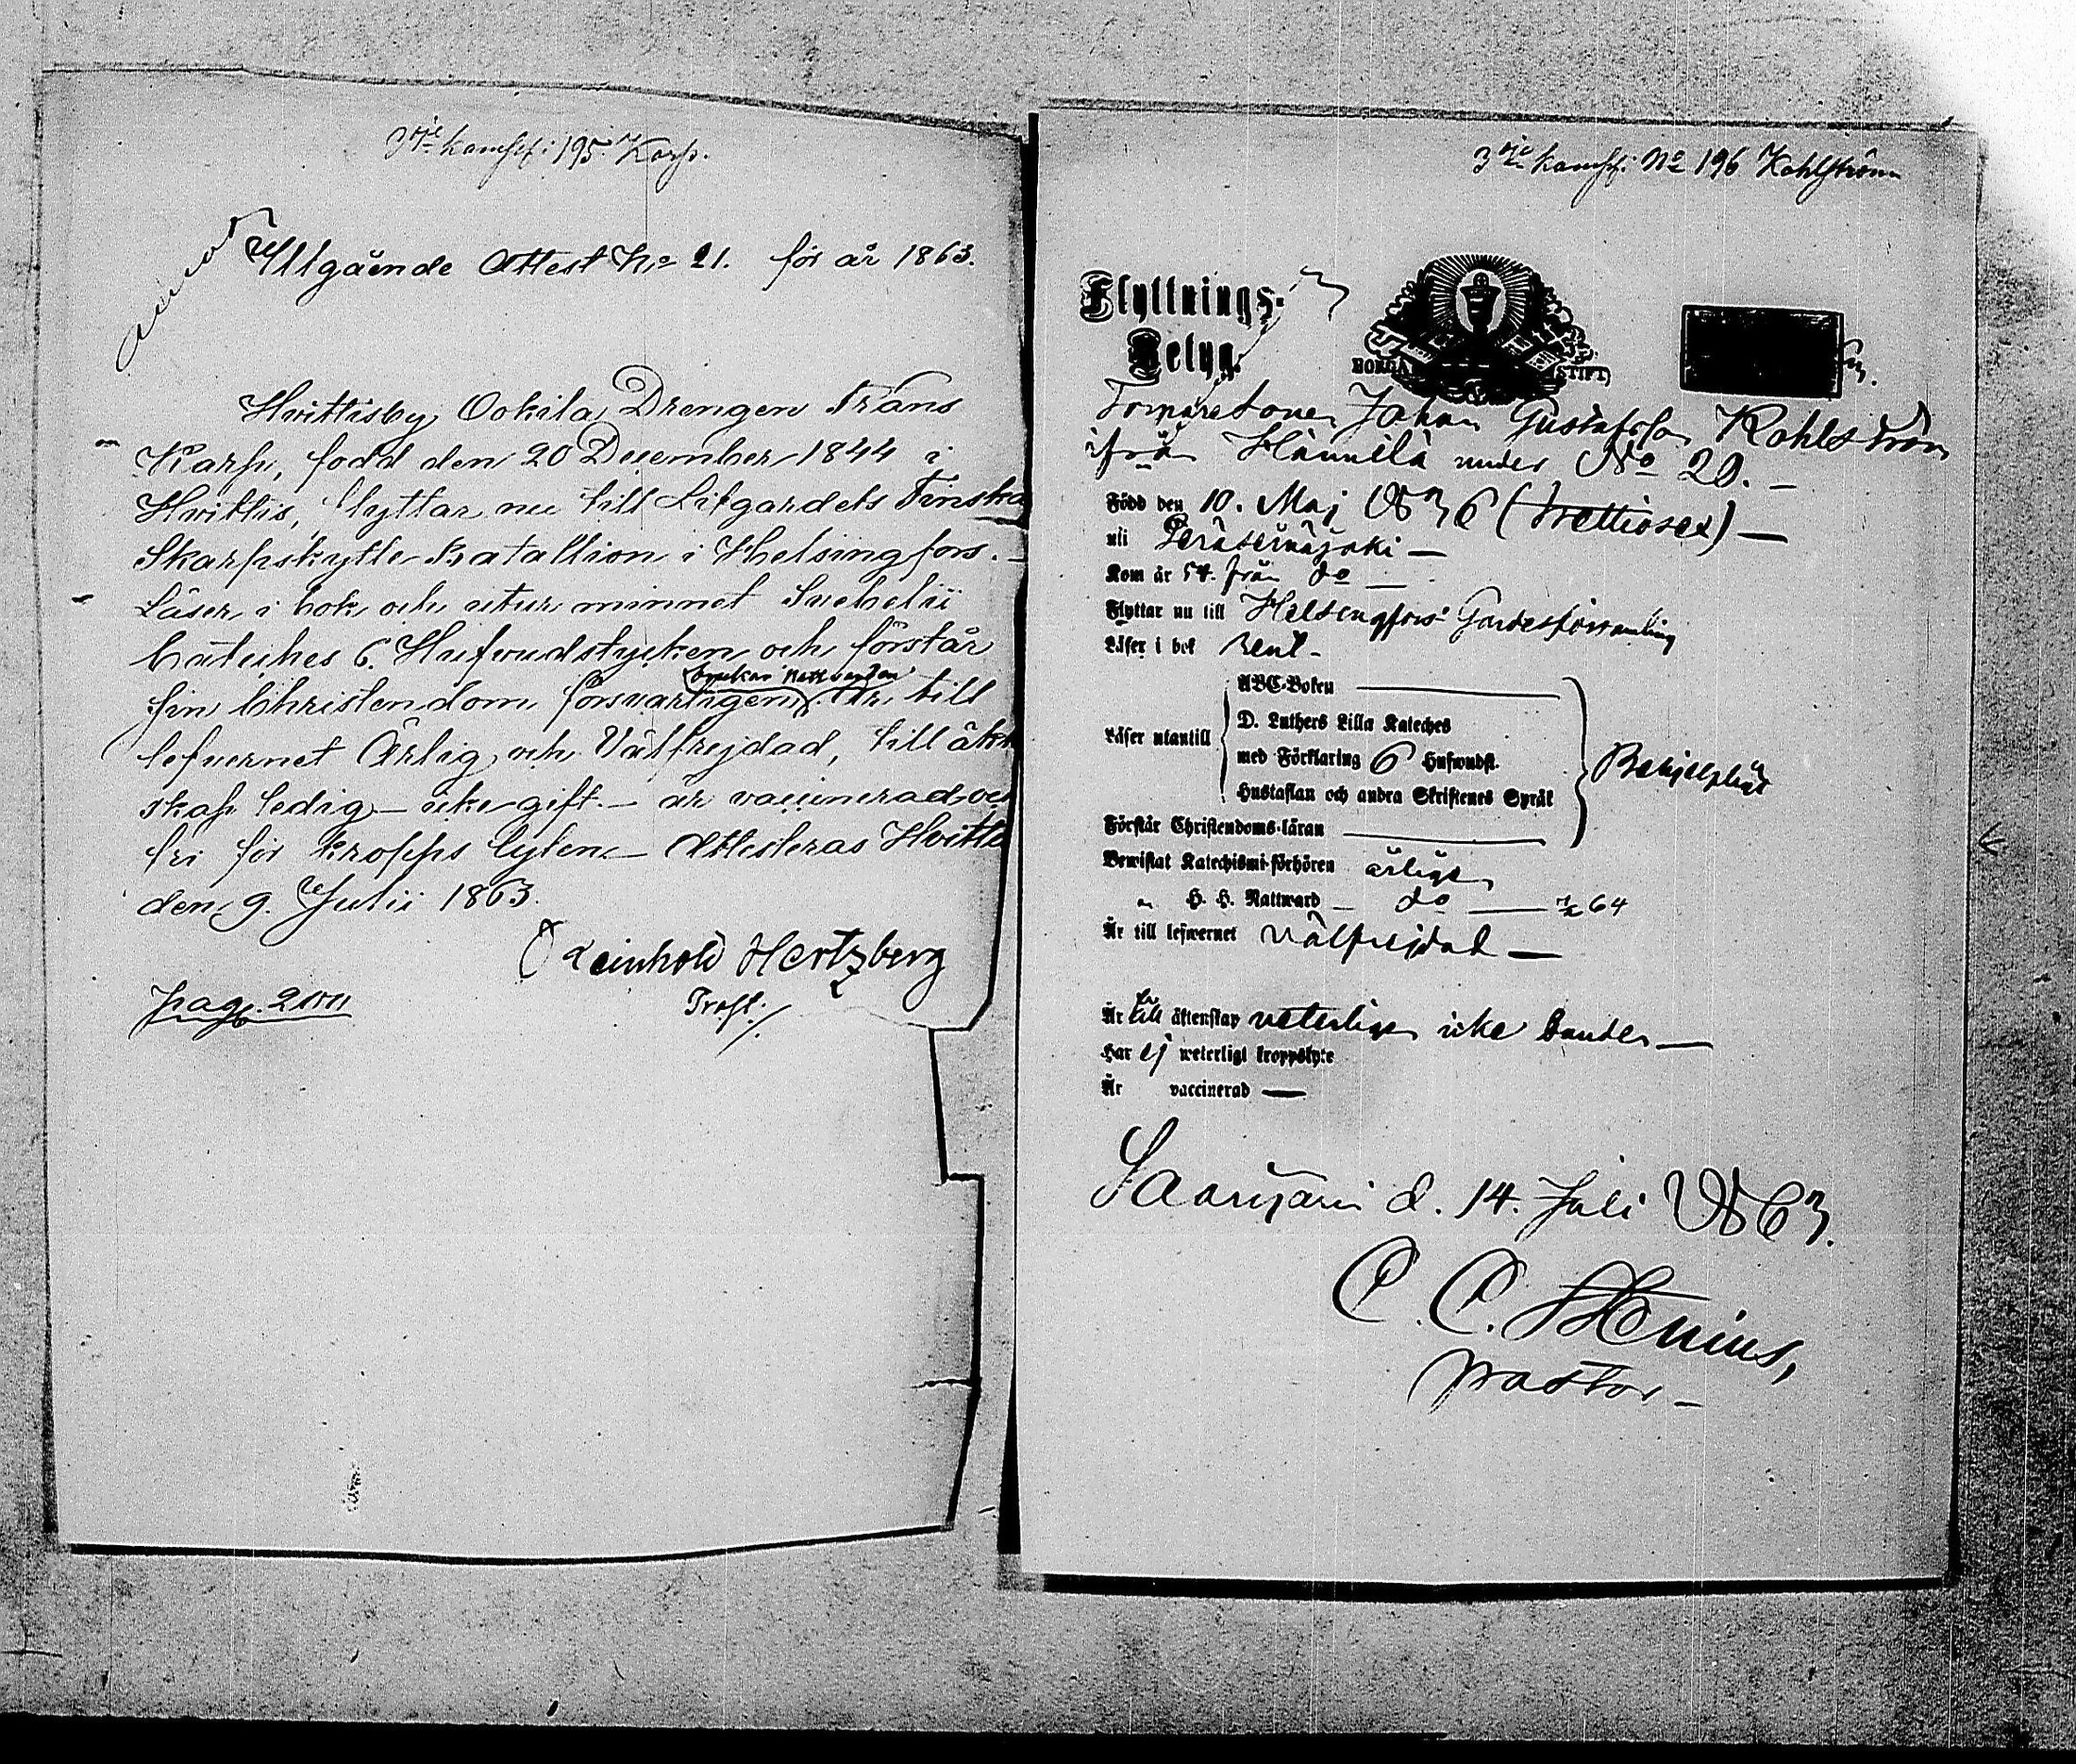 3dje komp: 195. Karp.
Utgående Attest No 21. för år 1863.
Hvittisby Ookila Drengen Frans
Karp, född den 20 December 1844 i
Hvittis, flyttar nu till Lifgardets Finska
Skarpskytte Batallion i Helsingfors.
Läser i bok och utur minnet Svebelii
Catehes 6. Hufvudstycken och förstår
sin Christendom försvarligen,
brukar Nattvarden
Är till
lefvernet Ärlig och Välfrejdad, till äkten
skap ledig – icke gift – är vaccinerad och
fri för kropps lyten – Attesteras Hvittis
den 9. Julii 1863.
Reinhold Hertzberg
Prost.
pag. 200
3dje komp: No 196 Kohlström
Flyttnings-
Betyg.
BORGÅ STIFT
Johan Gustafsson Kohlström
ifrån Hännilä under No 20. –
Född den 10. Maj 1836 (trettiosex) –
uti Peräseinäjoki –
Kom år 54. från do –
Flyttar nu till Helsingfors Gardesförsamling
Läser i bok Rent –
ABC-Boken
D. Luthers Lilla Kateches
Läser utantill
med Förklaring 6 Hufwudst.
Hustaflan och andra Skriftenes Språk
Förstår Christendoms-läran
Bewistat Katechismi-förhören årligen
" H. H. Nattward – do – 64
Är till lefwernet välfrejdad –
Är till äktenskap veterligen icke bunden –
Har ej weterligt kroppslyte
Är vaccinerad –
Saarijärvi d. 14. Juli 1863.
pastor –